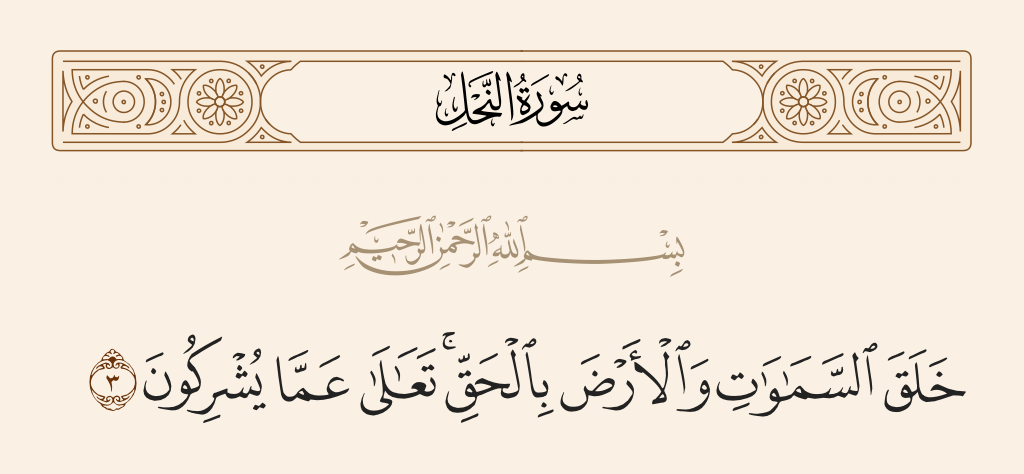 سُورَةُ النَّحْلِ
بِسْمِ ٱللَّهِ ٱلرَّحْمَٰنِ ٱلرَّحِيمِ
خَلَقَ ٱلسَّمَٰوَٰتِ وَٱلْأَرْضَ بِٱلْحَقِّ ۚ تَعَٰلَىٰ عَمَّا يُشْرِكُونَ ٣